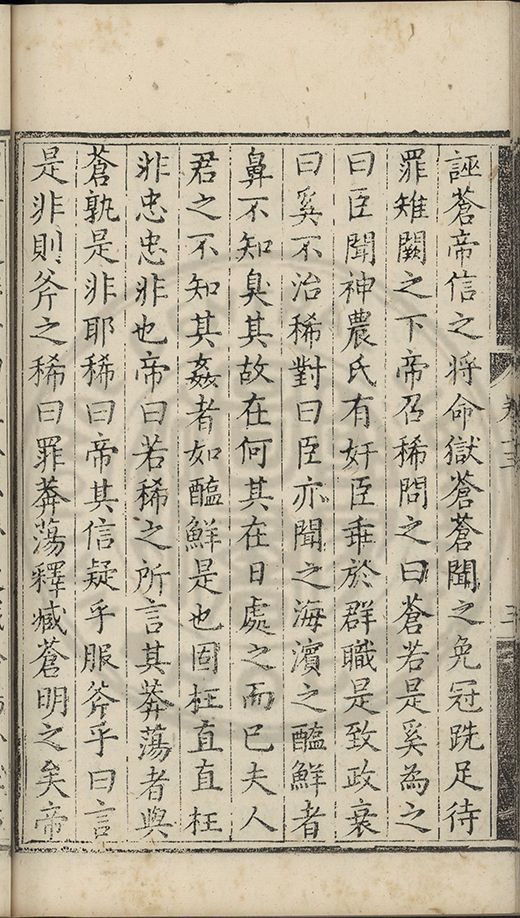 誣蒼帝信之将命獄蒼蒼聞之免冠跣足待
罪雉闕之下帝召稀問之曰蒼若是奚為之
曰臣聞神農氏有奸臣乖於群職是致政衰
曰奚不治稀對曰臣亦聞之海濱之醢鮮者
鼻不知臭其故在何其在日處之而已夫人
君之不知其姦者如醢鮮是也固枉直直枉
非忠忠非也帝曰若稀之所言其莽蕩者與
蒼孰是非耶稀曰帝其信疑乎服斧乎曰言
是非則斧之稀曰罪莽蕩釋臧蒼明之矣帝
卷十三
三